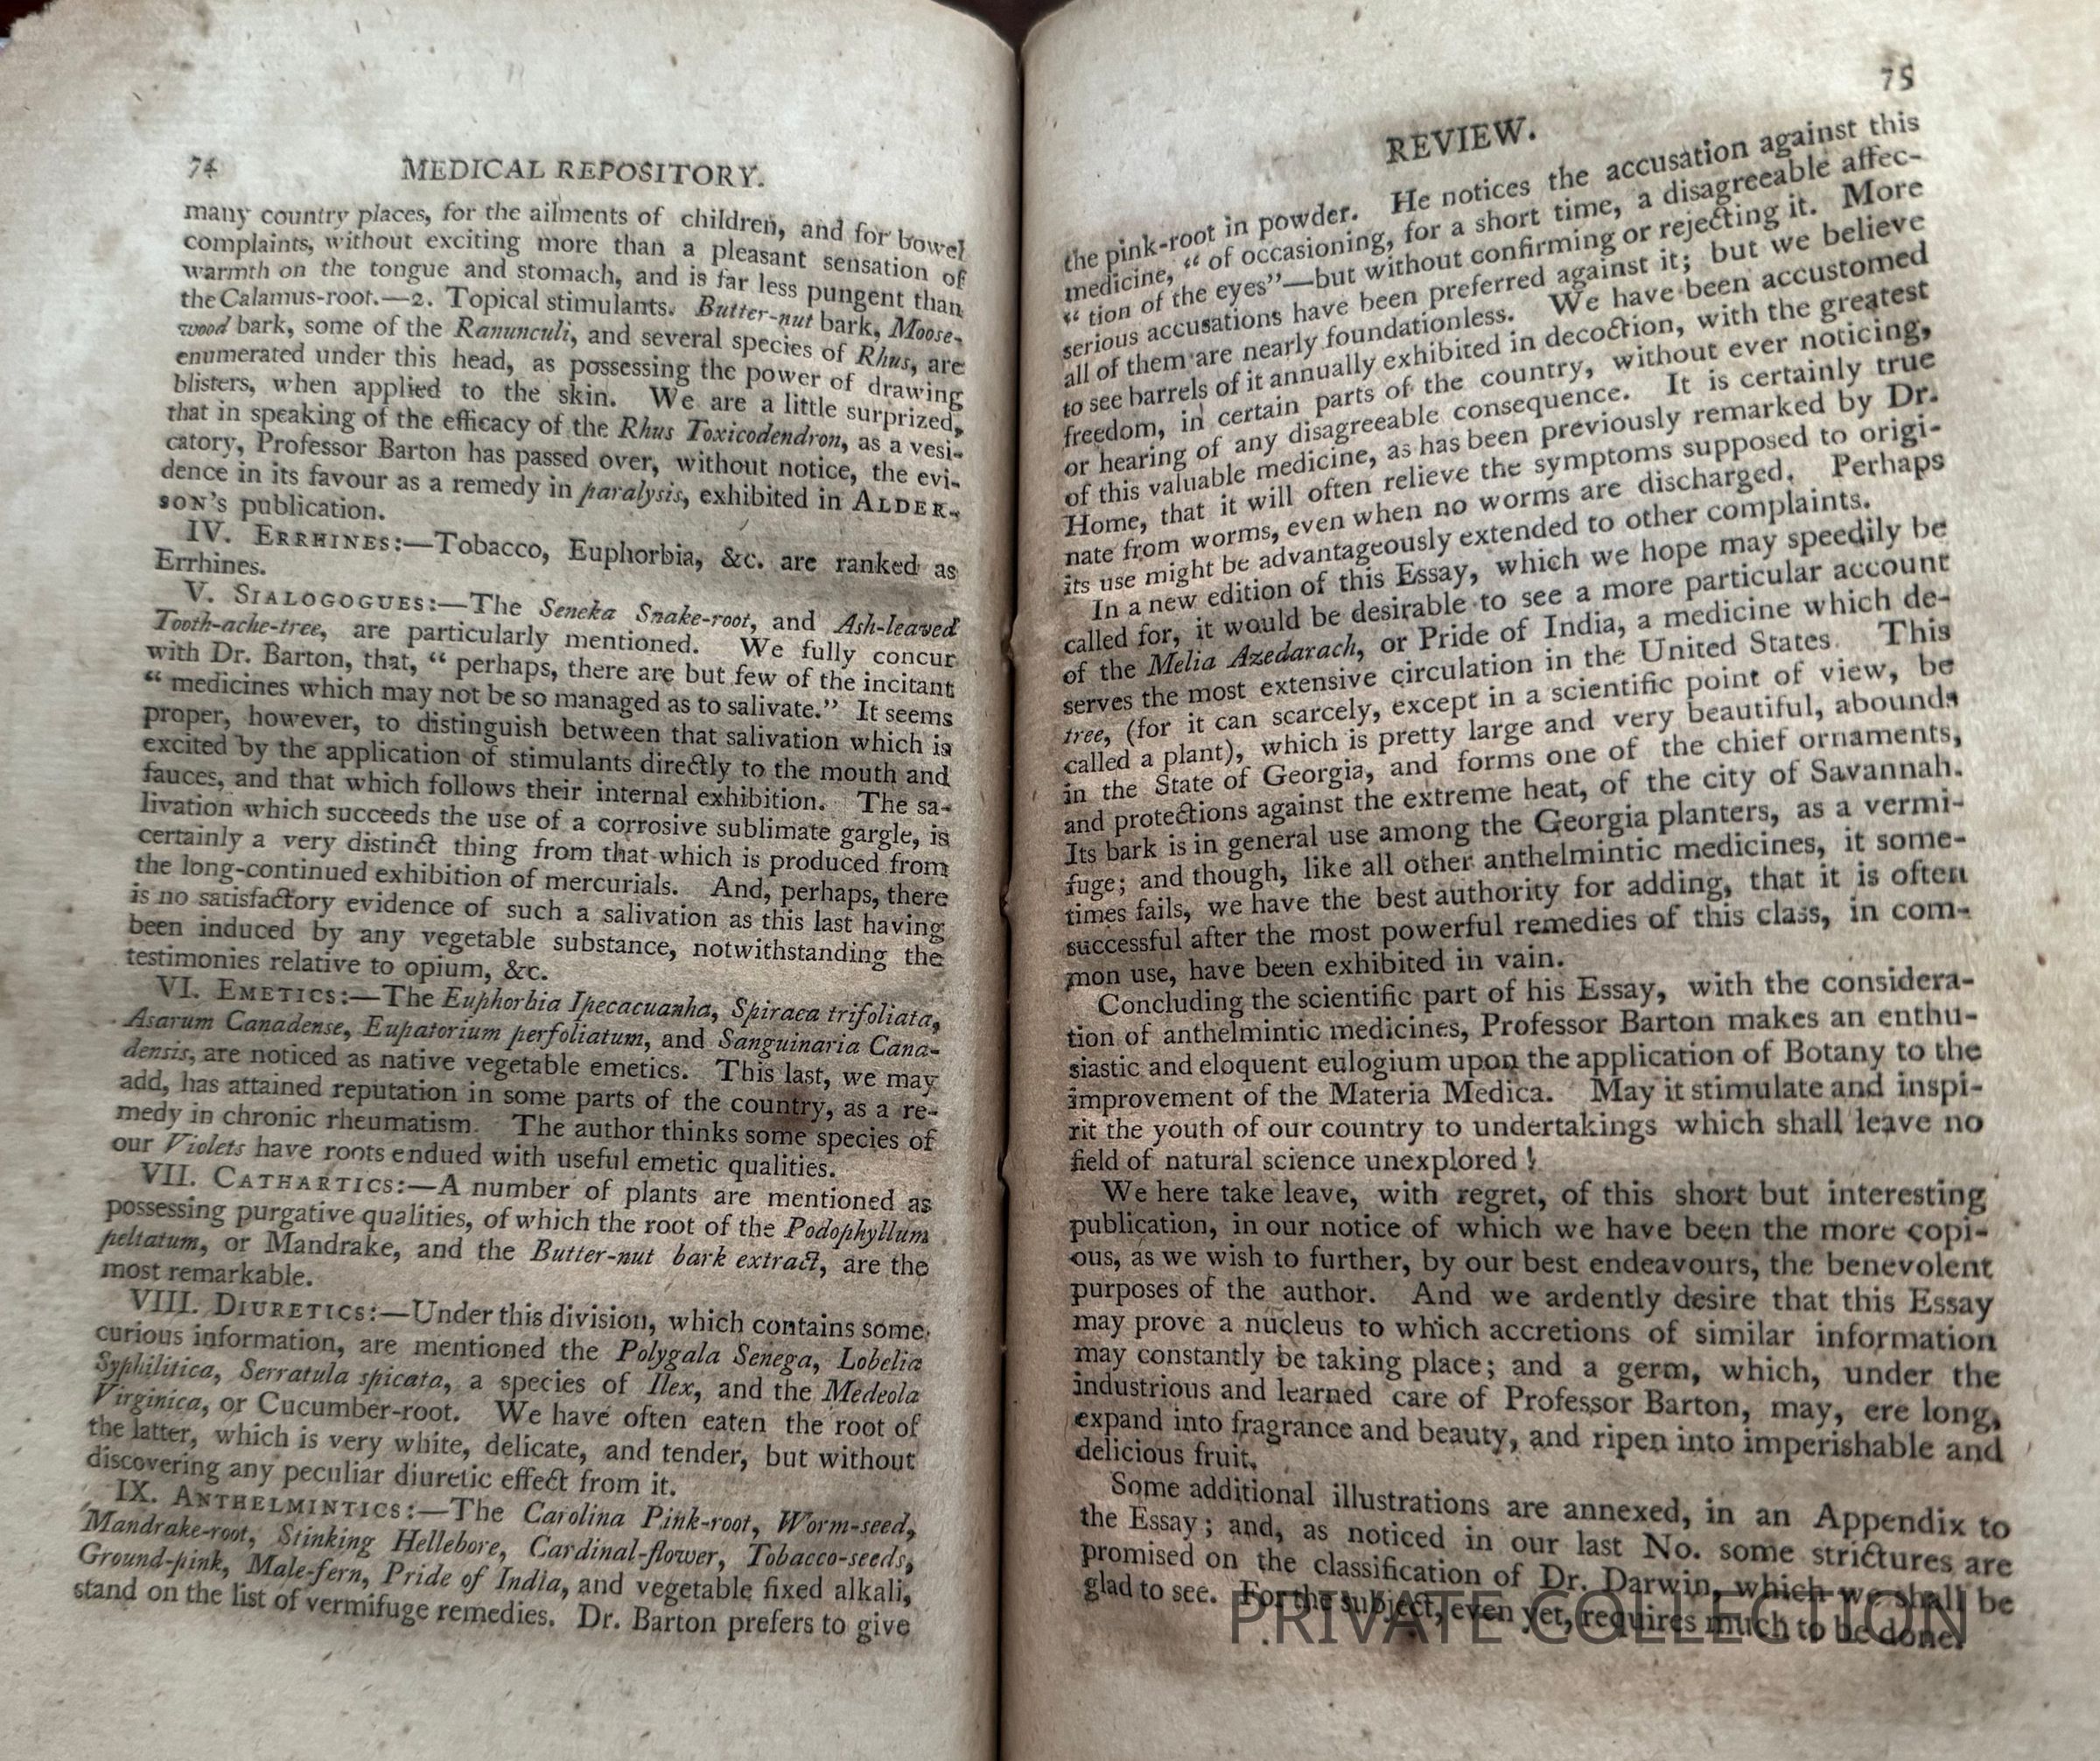 74 MEDICAL REPOSITORY.
many country places, for the ailments of children, and for bowel
complaints, without exciting more than a pleasant sensation of
warmth on the tongue and stomach, and is far less pungent than
the Calamus-root.—2. Topical stimulants. Butter-nut bark, Moose-
wood bark, some of the Ranunculi, and several species of Rhus, are
enumerated under this head, as possessing the power of drawing
blisters, when applied to the skin. We are a little surprized,
that in speaking of the efficacy of the Rhus Toxicodendron, as a vesi-
catory, Professor Barton has passed over, without notice, the evi-
dence in its favour as a remedy in paralysis, exhibited in ALDER-
SON'S publication.
IV. ERRHINES:—Tobacco, Euphorbia, &c. are ranked as
Errhines.
V. SIALOGOGUES:—The Seneka Snake-root, and Ash-leaved
Tooth-ache-tree, are particularly mentioned. We fully concur
with Dr. Barton, that, “ perhaps, there are but few of the incitant
“ medicines which may not be so managed as to salivate.” It seems
proper, however, to distinguish between that salivation which is
excited by the application of stimulants directly to the mouth and
fauces, and that which follows their internal exhibition. The sa-
livation which succeeds the use of a corrosive sublimate gargle, is
certainly a very distinct thing from that which is produced from
the long-continued exhibition of mercurials. And, perhaps, there
is no satisfactory evidence of such a salivation as this last having
been induced by any vegetable substance, notwithstanding the
testimonies relative to opium, &c.
VI. EMETICS:—The Euphorbia Ipecacuanha, Spiraea trifoliata,
Asarum Canadense, Eupatorium perfoliatum, and Sanguinaria Cana-
densis, are noticed as native vegetable emetics. This last, we may
add, has attained reputation in some parts of the country, as a re-
medy in chronic rheumatism. The author thinks some species of
our Violets have roots endued with useful emetic qualities.
VII. CATHARTICS:—A number of plants are mentioned as
possessing purgative qualities, of which the root of the Podophyllum
peltatum, or Mandrake, and the Butter-nut bark extract, are the
most remarkable.
VIII. DIURETICS:—Under this division, which contains some
curious information, are mentioned the Polygala Senega, Lobelia
Syphilitica, Serratula spicata, a species of Ilex, and the Medeola
Virginica, or Cucumber-root. We have often eaten the root of
the latter, which is very white, delicate, and tender, but without
discovering any peculiar diuretic effect from it.
IX. ANTHELMINTICS:—The Carolina Pink-root, Worm-seed,
Mandrake-root, Stinking Hellebore, Cardinal-flower, Tobacco-seeds,
Ground-pink, Male-fern, Pride of India, and vegetable fixed alkali,
stand on the list of vermifuge remedies. Dr. Barton prefers to give
75
REVIEW.
the pink-root in powder. He notices the accusation against this
medicine, “ of occasioning, for a short time, a disagreeable affec-
“ tion of the eyes”—but without confirming or rejecting it. More
serious accusations have been preferred against it; but we believe
all of them are nearly foundationless. We have been accustomed
to see barrels of it annually exhibited in decoction, with the greatest
freedom, in certain parts of the country, without ever noticing,
or hearing of any disagreeable consequence. It is certainly true
of this valuable medicine, as has been previously remarked by Dr.
Home, that it will often relieve the symptoms supposed to origi-
nate from worms, even when no worms are discharged. Perhaps
its use might be advantageously extended to other complaints.
In a new edition of this Essay, which we hope may speedily be
called for, it would be desirable to see a more particular account
of the Melia Azedarach, or Pride of India, a medicine which de-
serves the most extensive circulation in the United States. This
tree, (for it can scarcely, except in a scientific point of view, be
called a plant), which is pretty large and very beautiful, abounds
in the State of Georgia, and forms one of the chief ornaments,
and protections against the extreme heat, of the city of Savannah.
Its bark is in general use among the Georgia planters, as a vermi-
fuge; and though, like all other anthelmintic medicines, it some-
times fails, we have the best authority for adding, that it is often
successful after the most powerful remedies of this class, in com-
mon use, have been exhibited in vain.
Concluding the scientific part of his Essay, with the considera-
tion of anthelmintic medicines, Professor Barton makes an enthu-
siastic and eloquent eulogium upon the application of Botany to the
improvement of the Materia Medica. May it stimulate and inspi-
rit the youth of our country to undertakings which shall leave no
field of natural science unexplored !
We here take leave, with regret, of this short but interesting
publication, in our notice of which we have been the more copi-
ous, as we wish to further, by our best endeavours, the benevolent
purposes of the author. And we ardently desire that this Essay
may prove a nucleus to which accretions of similar information
may constantly be taking place; and a germ, which, under the
industrious and learned care of Professor Barton, may, ere long,
expand into fragrance and beauty, and ripen into imperishable and
delicious fruit.
Some additional illustrations are annexed, in an Appendix to
the Essay; and, as noticed in our last No. some strictures are
promised on the classification of Dr. Darwin, which we shall be
glad to see. For the subject, even yet, requires much to be done.
PRIVATE COLLECTION